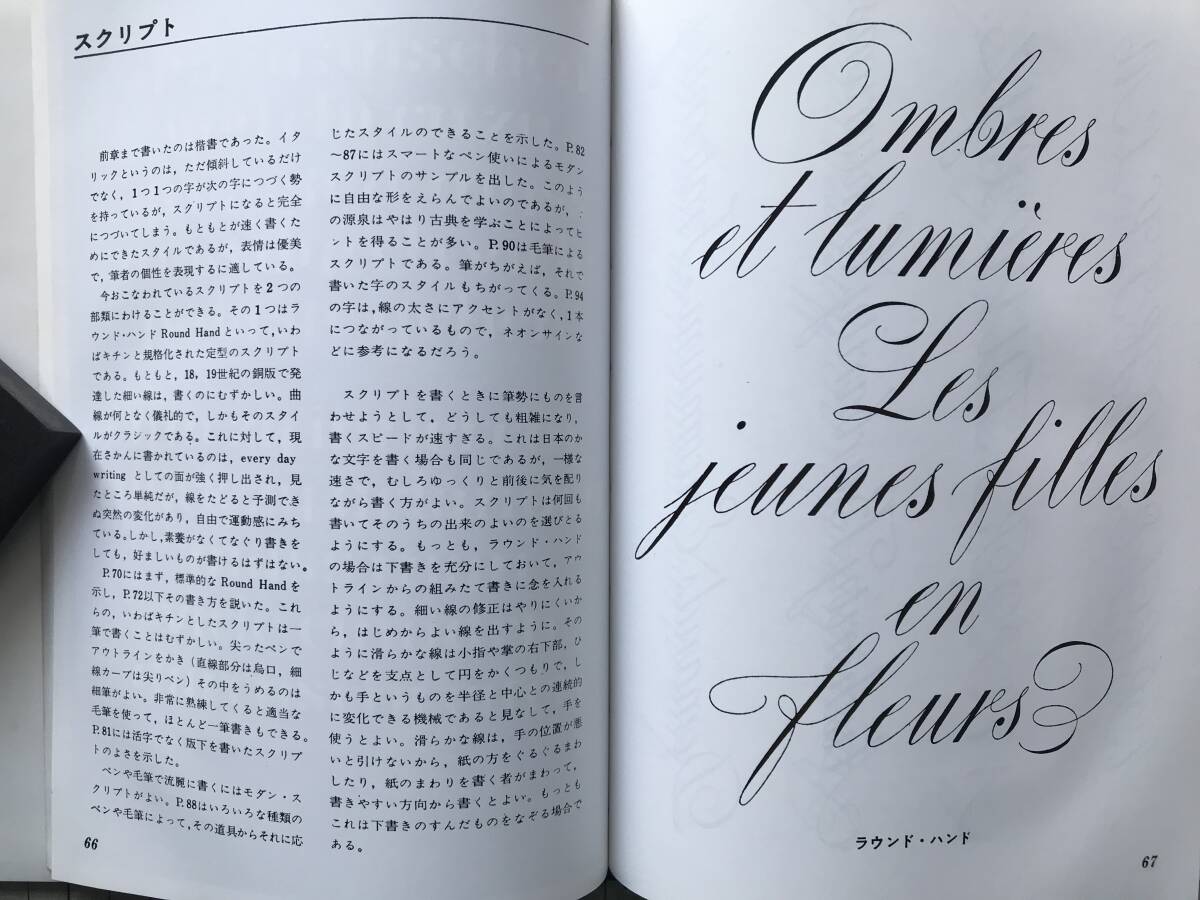 スクリプト
前章まで書いたのは楷書であった。イタ
リックというのは，ただ傾斜しているだけ
でなく，1つ1つの字が次の字につづく勢
を持っているが，スクリプトになると完全
につづいてしまう。もともとが速く書くた
めにできたスタイルであるが，表情は優美
で，筆者の個性を表現するに適している。
今おこなわれているスクリプトを2つの
部類にわけることができる。その1つはラ
ウンド・ハンド Round Hand といって，いわ
ばキチンと規格化された定型のスクリプト
である。もともと，18，19世紀の銅版で発
達した細い線は，書くのにむずかしい。曲
線が何となく儀礼的で，しかもそのスタイ
ルがクラシックである。これに対して，現
在さかんに書かれているのは，every day
writing としての面が強く押し出され，見
たところ単純だが，線をたどると予測でき
ぬ突然の変化があり，自由で運動感にみち
ている。しかし，素養がなくてなぐり書きを
しても，好ましいものが書けるはずはない。
P.70にはまず，標準的な Round Hand を
示し，P.72以下その書き方を説いた。これ
らの，いわばキチンとしたスクリプトは一
筆で書くことはむずかしい。尖ったペンで
アウトラインをかき（直線部分は烏口，細
線カーブは尖りペン）その中をうめるのは
細筆がよい。非常に熟練してくると適当な
毛筆を使って，ほとんど一筆書きもできる。
P.81には活字でなく版下を書いたスクリプ
トのよさを示した。
ペンや毛筆で流麗に書くにはモダン・ス
クリプトがよい。P.88はいろいろな種類の
ペンや毛筆によって，その道具からそれに応
66
じたスタイルのできることを示した。P.82
〜87にはスマートなペン使いによるモダン
スクリプトのサンプルを出した。このよう
に自由な形をえらんでよいのであるが，
の源泉はやはり古典を学ぶことによってヒ
ントを得ることが多い。P.90は毛筆による
スクリプトである。筆がちがえば，それで
書いた字のスタイルもちがってくる。P.94
の字は，線の太さにアクセントがなく，1本
につながっているもので，ネオンサインな
どに参考になるだろう。
スクリプトを書くときに筆勢にものを言
わせようとして，どうしても粗雑になり，
書くスピードが速すぎる。これは日本のか
な文字を書く場合も同じであるが，一様な
速さで，むしろゆっくりと前後に気を配り
ながら書く方がよい。スクリプトは何回も
書いてそのうちの出来のよいのを選びとる
ようにする。もっとも，ラウンド・ハンド
の場合は下書きを充分にしておいて，アウ
トラインからの組みたて書きに念を入れる
ようにする。細い線の修正はやりにくいか
ら，はじめからよい線を出すように。その
ように滑らかな線は小指や掌の右下部，ひ
じなどを支点として円をかくつもりで，し
かも手というものを半径と中心との連続的
に変化できる機械であると見なして，手を
使うとよい。滑らかな線は，手の位置が悪
いと引けないから，紙の方をぐるぐるまわ
したり，紙のまわりを書く者がまわって，
書きやすい方向から書くとよい。もっとも
これは下書きのすんだものをなぞる場合で
ある。
Ombres
et lumières
Les
jeunes filles
en
fleurs
ラウンド・ハンド
67